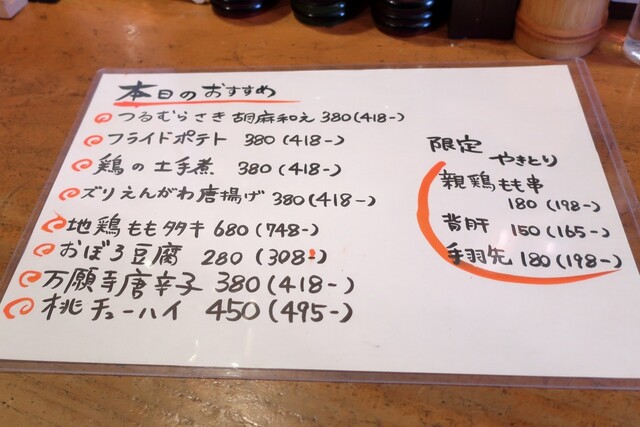 本日のおすすめ
つるむらさき 胡麻和え 380(418-)
フライドポテト 380(418-)
鶏の土手煮 380(418-)
ズリえんがわ唐揚げ 380(418-)
地鶏ももタタキ 680(748-)
おぼろ豆腐 280(308-)
万願寺唐辛子 380(418-)
桃チューハイ 450(495-)
限定 やきとり
親鶏もも串
180(198-)
背肝 150(165-)
手羽先 180(198-)